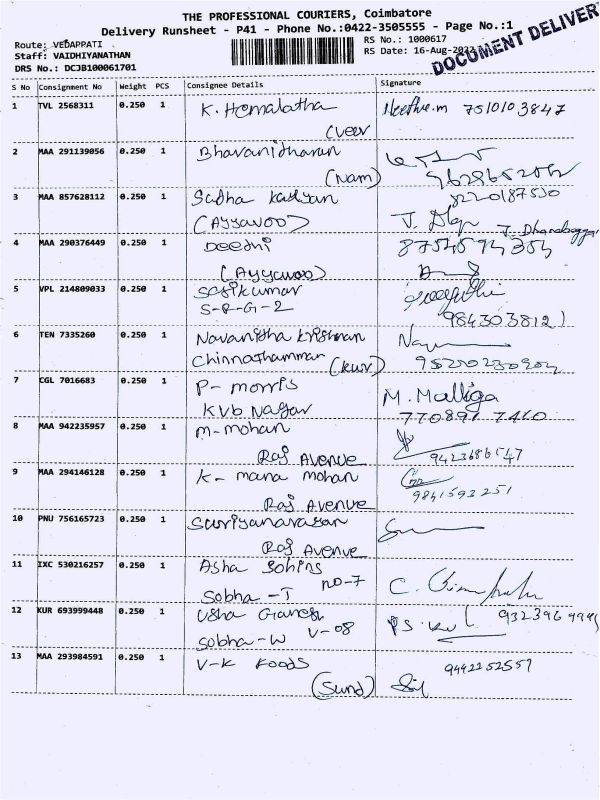 THE PROFESSIONAL COURIERS, Coimbatore
Delivery Runsheet - P41 - Phone No.:0422-3505555 - Page No.:1
Route: VEDAPPATI
RS No.: 1000617
Staff: VAIDHIYANATHAN
RS Date: 16-Aug-2022
DRS No.: DCJB100061701
DOCUMENT DELIVER
S No Consignment No Weight PCS Consignee Details Signature
1 TVL 2568311 0.250 1 K. Hemalatha 7510103847
(Veer
2 MAA 291139056 0.250 1 Bhavanidharan
(Nam)
3 MAA 857628112 0.250 1 Sadha Kalyan 8220187530
(AYYAVOO) J.
4 MAA 290376449 0.250 1 Deedhi 8754594354
(Ayyavoo)
5 VPL 214809033 0.250 1 Sasikumar
S-R-G-2 9843038121
6 TEN 7335260 0.250 1 Navanitha Krishnan
Chinnathammar (kur)
7 CGL 7016683 0.250 1 P- morris M. Malliga
KVB Nagar 770891 7410
8 MAA 942235957 0.250 1 m-mohan
Raj Avenue 9423686547
9 MAA 294146128 0.250 1 K- mana mohan
Raj Avenue 9841593251
10 PNU 756165723 0.250 1 Suriyanarayan
Raj Avenue
11 IXC 530216257 0.250 1 Asha Sohins
Sobha -T NO-7 C.
12 KUR 693999448 0.250 1 Usha Ganesh
Sobha-W V-08 PS.
13 MAA 293984591 0.250 1 V-K Foods 9442252557
(Sund)